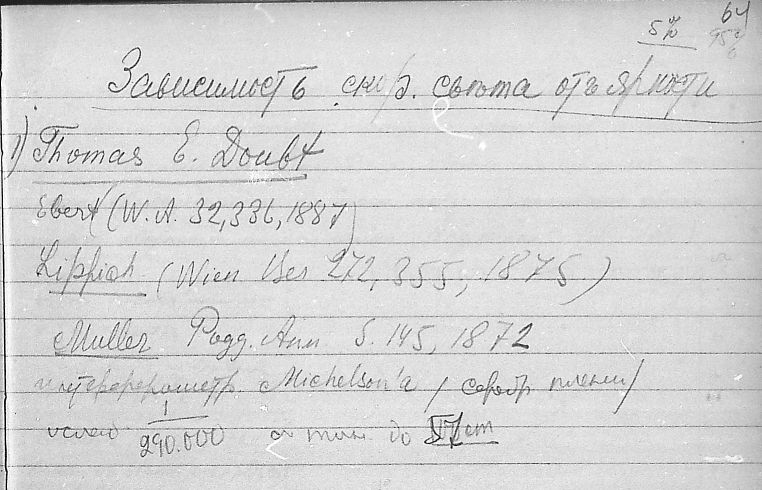 64
5%
Зависимость скор. свѣта отъ яркости
1) Thomas E. Doubt
Ebert (W. A. 32, 336, 1887)
Lippich (Wien Ber 272, 355, 1875)
Muller Pogg. Ann. S. 145, 1872
интерферометр Michelson'a / серебр пленки /
1
290.000 до